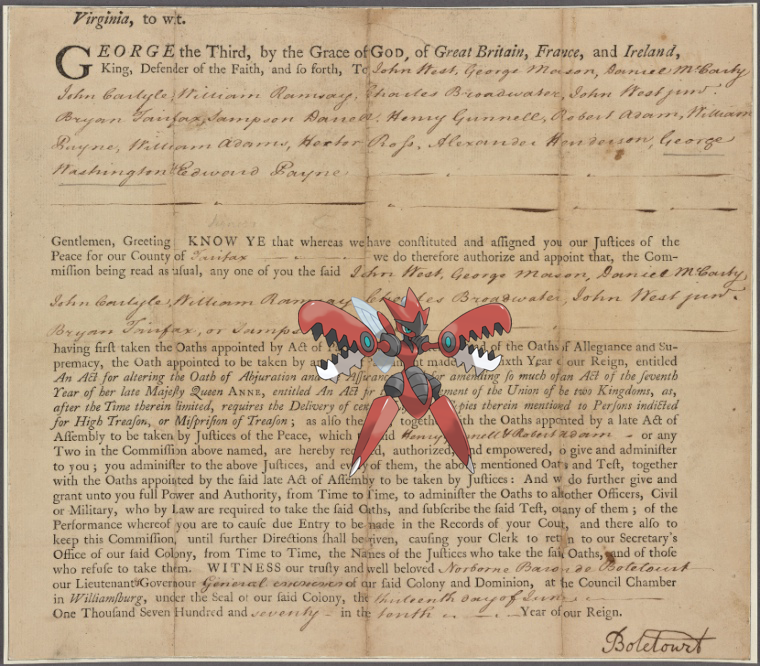 Virginia, to wit.
GEORGE the Third, by the Grace of GOD, of Great Britain, France, and Ireland,
King, Defender of the Faith, and so forth, To John West, George Mason, Daniel McCarty
John Carlyle, William Ramsay, Charles Broadwater, John West junr.
Bryan Fairfax, Sampson Darrell, Henry Gunnell, Robert Adam, William
Payne, William Adams, Hector Ross, Alexander Henderson, George
Washington & Edward Payne
Gentlemen, Greeting KNOW YE that whereas we have constituted and assigned you our Justices of the
Peace for our County of Fairfax we do therefore authorize and appoint that, the Com-
mission being read as usual, any one of you the said John West, George Mason, Daniel McCarty
John Carlyle, William Ramsay Charles Broadwater, John West junr.
Bryan Fairfax, or Samps
having first taken the Oaths appointed by Act of of the Oaths of Allegiance and Su-
premacy, the Oath appointed to be taken by an made sixth Year our Reign, entitled
An Act for altering the Oath of Abjuration and Assurance for amending so much of an Act of the seventh
Year of her late Majesty Queen ANNE, entitled An Act for of the Union of he two Kingdoms, as,
after the Time therein limited, requires the Delivery of Copies therein mentioned to Persons indicted
for High Treason, or Misprision of Treason; as also the together with the Oaths appointed by a late Act of
Assembly to be taken by Justices of the Peace, which said Henry Gunnell & Robert Adam or any
Two in the Commission above named, are hereby authorized and empowered, to give and administer
to you; you administer to the above Justices, and every of them, the above mentioned Oaths and Test, together
with the Oaths appointed by the said late Act of Assembly to be taken by Justices: And we do further give and
grant unto you full Power and Authority, from Time to Time, to administer the Oaths to all other Officers, Civil
or Military, who by Law are required to take the said Oaths, and subscribe the said Test, or any of them; of the
Performance whereof you are to cause due Entry to be made in the Records of your Court, and there also to
keep this Commission, until further Directions shall be given, causing your Clerk to return to our Secretary's
Office of our said Colony, from Time to Time, the Names of the Justices who take the said Oaths, and of those
who refuse to take them. WITNESS our trusty and well beloved Norborne Baron de Botetourt
our Lieutenant & Governour General of our said Colony and Dominion, at the Council Chamber
in Williamsburg, under the Seal of our said Colony, the thirteenth day of June
One Thousand Seven Hundred and seventy in the tenth Year of our Reign.
Botetourt